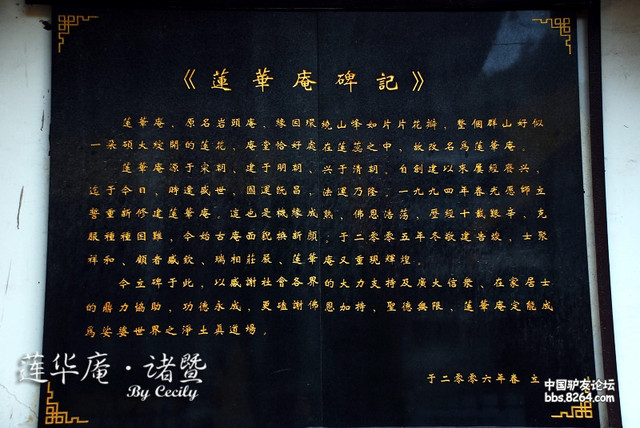 《蓮華庵碑記》
蓮華庵、原名岩頭庵、緣因環繞山峰如片片花瓣，整個群山好似
一朵碩大綻開的蓮花，庵堂恰好處在蓮蕊之中，故改名為蓮華庵。
蓮華庵源于宋朝、建于明朝、兴于清朝，自創建以來屢經廢兴，
迄于今日，時逢盛世，國運既昌，法運乃隆。一九九四年春光愿師立
誓重新修建蓮華庵。這也是機緣成熟，佛恩浩荡，歷經十載艱辛，克
服種種困難，令始古庵面貌換新顏。于二零零五年冬敬建告竣，士聚
祥和、領者咸欽、瑞相莊嚴、蓮華庵又重現輝煌。
今立碑于此，以感謝社會各界的大力支持及廣大信衆、在家居士
的鼎力協助，功德永成，更磕謝佛恩加持、聖德無限，蓮華庵定能成
為娑婆世界之淨土真道場。
于二零零六年春 立
莲华庵·诸暨
By Cecily
中国驴友论坛
bbs.8264.com